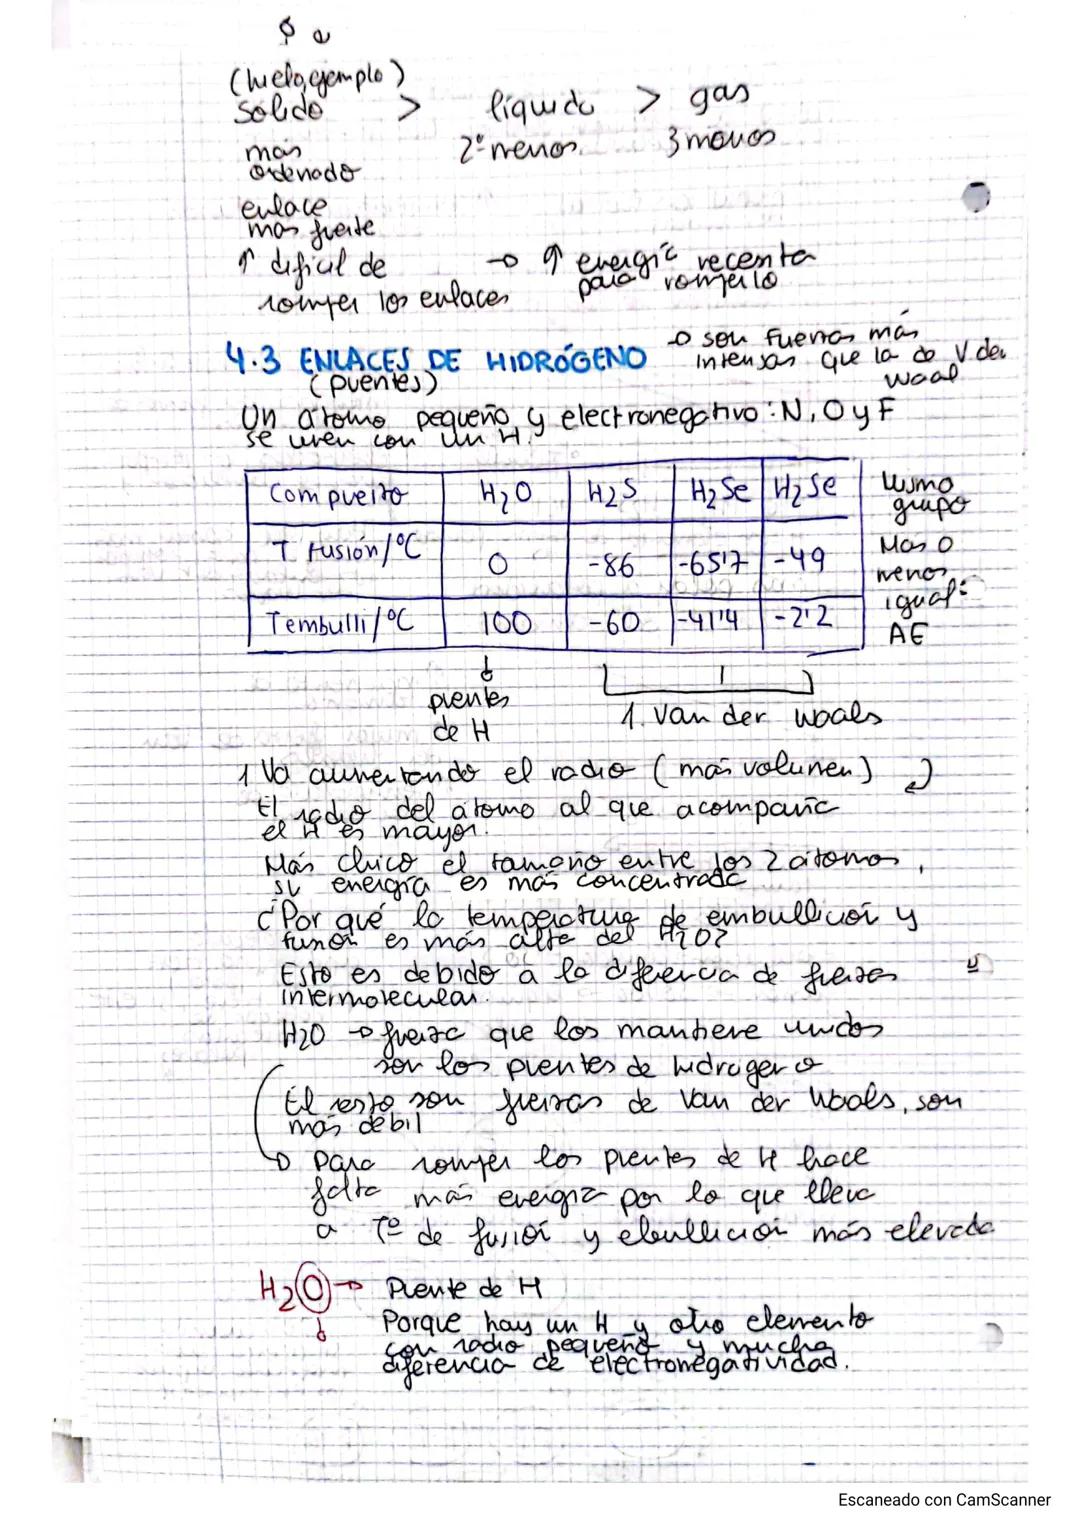 (hielo, ejemplo)
Sólido > líquido > gas
mas 2º menos 3 menos
ordenado
enlace
mas fuerte
↑ dificil de → ↑ energía necesita
romper los enlaces para romperlo
4.3 ENLACES DE HIDRÓGENO → son fuerzas más
(puentes) intensas que la de V der
Waal
Un átomo pequeño y electronegativo: N, O y F
se unen con un H.
Compuesto H2O H2S H2Se H2Se
T. fusión/ºC 0 -86 -65'7 -49
Tembulli/ºC 100 -60 -41'4 -2'2
Mismo
grupo
Mas o
menos
igual:
AE
puentes
de H
1. Van der Waals
1 Va aumentando el radio (más volumen)
El radio del átomo al que acompaña
el H es mayor.
Más chico el tamaño entre los 2 átomos,
su energía es más concentrada
¿Por qué la temperatura de embullición y
fusión es más alta del H2O?
Esto es debido a la diferencia de fuerzas
intermolecular.
H2O → fuerza que los mantiene unidos
son los puentes de hidrogeno
El resto son fuerzas de Van der Waals, son
más débil
→ para romper los puentes de H hace
falta más energía por lo que lleva
a Tº de fusión y ebullición más elevada
H2O → Puente de H
Porque hay un H y otro elemento
con radio pequeño y mucha
diferencia de electronegatividad.
Escaneado con CamScanner